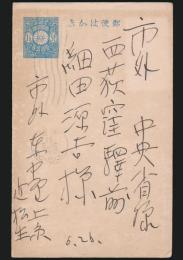 郵便はかき
市外 中央省線
西荻窪驛前
細田源吉様
市外 東中野上原
6.26.